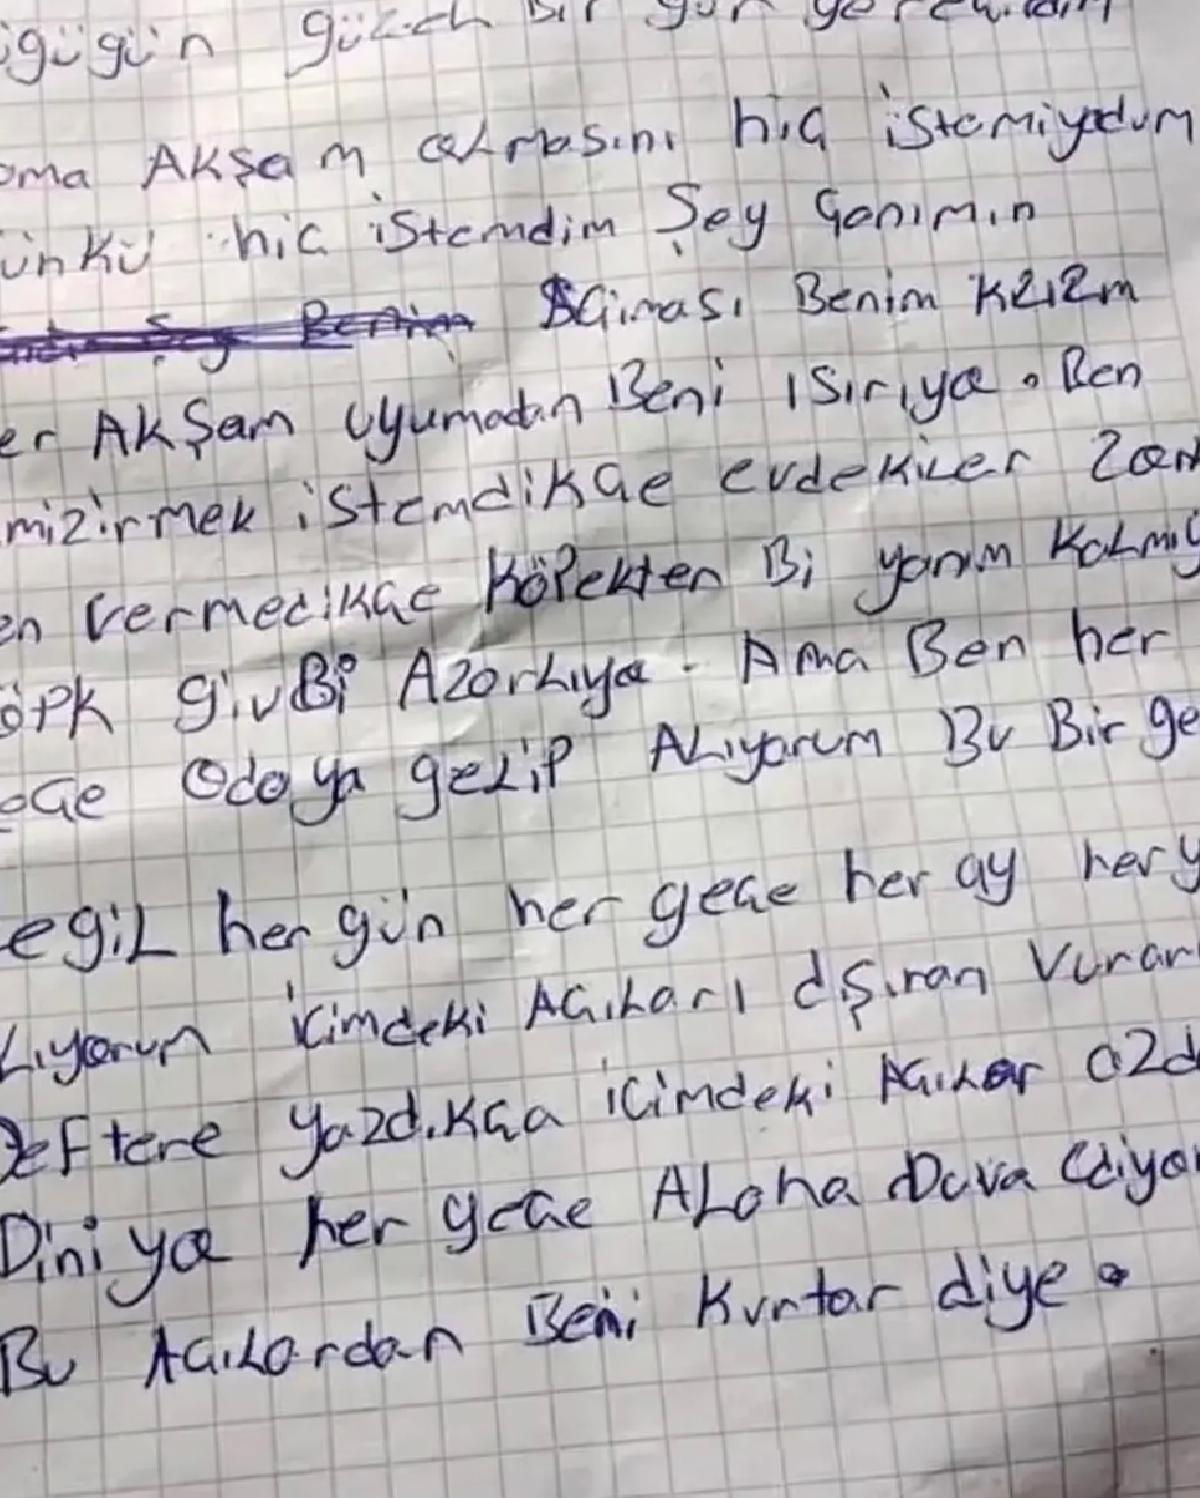 güzel Bir gün
AKşam oLmasını hiç istemiyodum
ünkü hiç istemdim Şey Çanımın
Benim AÇıması Benim Kızım
er AKşam Uyumadan Beni ısırıya. Ben
mizirmek istemdikçe evdekiler zor
en vermedikçe KöPekten Bi yanım KaLmıy
öPK givBi AzarLıya. Ama Ben her
eçe Odaya geLiP ALıyorum Bu Bir ge
egiL her gün her geçe her ay her y
Lıyorum içimdeki AçıLarı dşıran Vurar
DeFtere yazdıkça içimdeki AçıLar azd
Diniya her geçe ALaha Duva Ediyor
Bu AçıLardan Beni Kurtar diye.